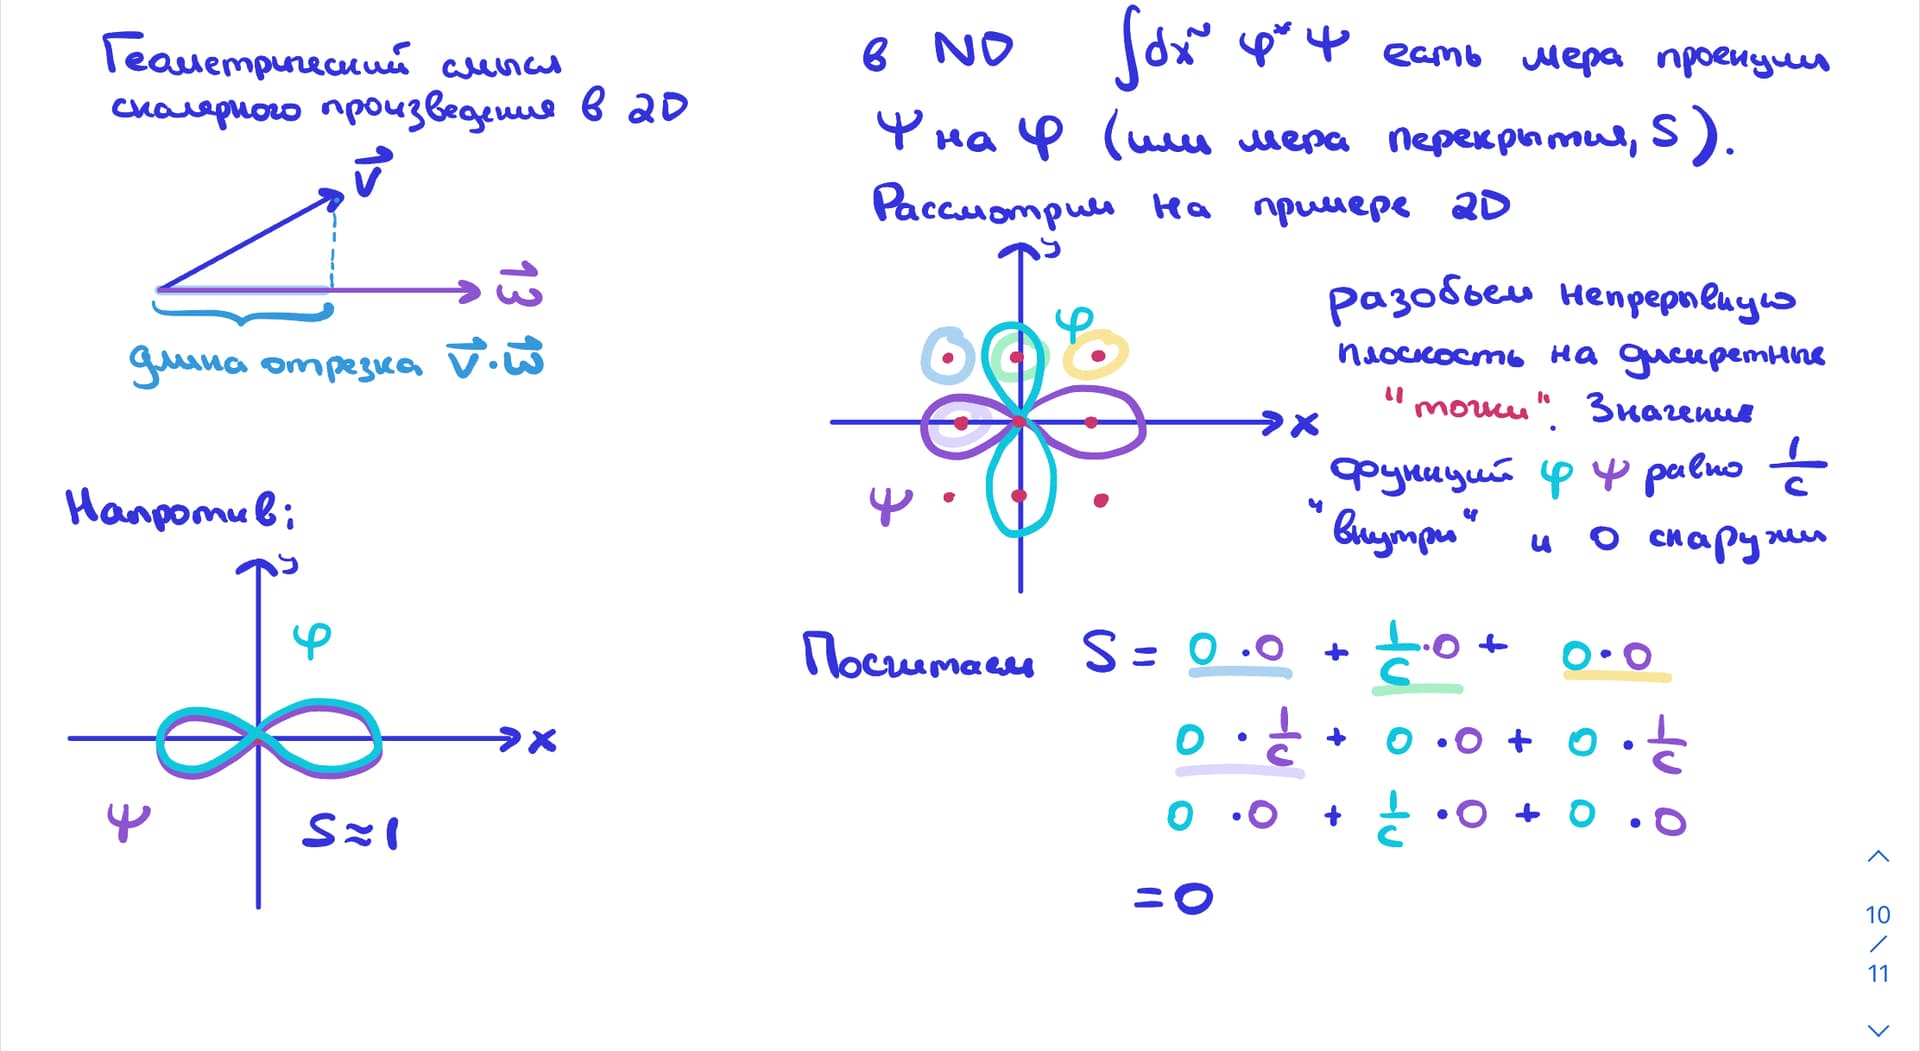 Геометрический смысл
скалярного произведения в 2D
v⃗
w⃗
длина отрезка v⃗·w⃗
Напротив:
y
φ
x
ψ
S≈1
в ND ∫dx^N φ*ψ есть мера проекции
ψ на φ (или мера перекрытия, S).
Рассмотрим на примере 2D
y
φ
x
ψ
разобьем непрерывную
плоскость на дискретные
"точки". Значение
функций φ ψ равно 1/c
"внутри" и 0 снаружи
Посчитаем S = 0·0 + 1/c·0 + 0·0
0·1/c + 0·0 + 0·1/c
0·0 + 1/c·0 + 0·0
=0
10
/
11